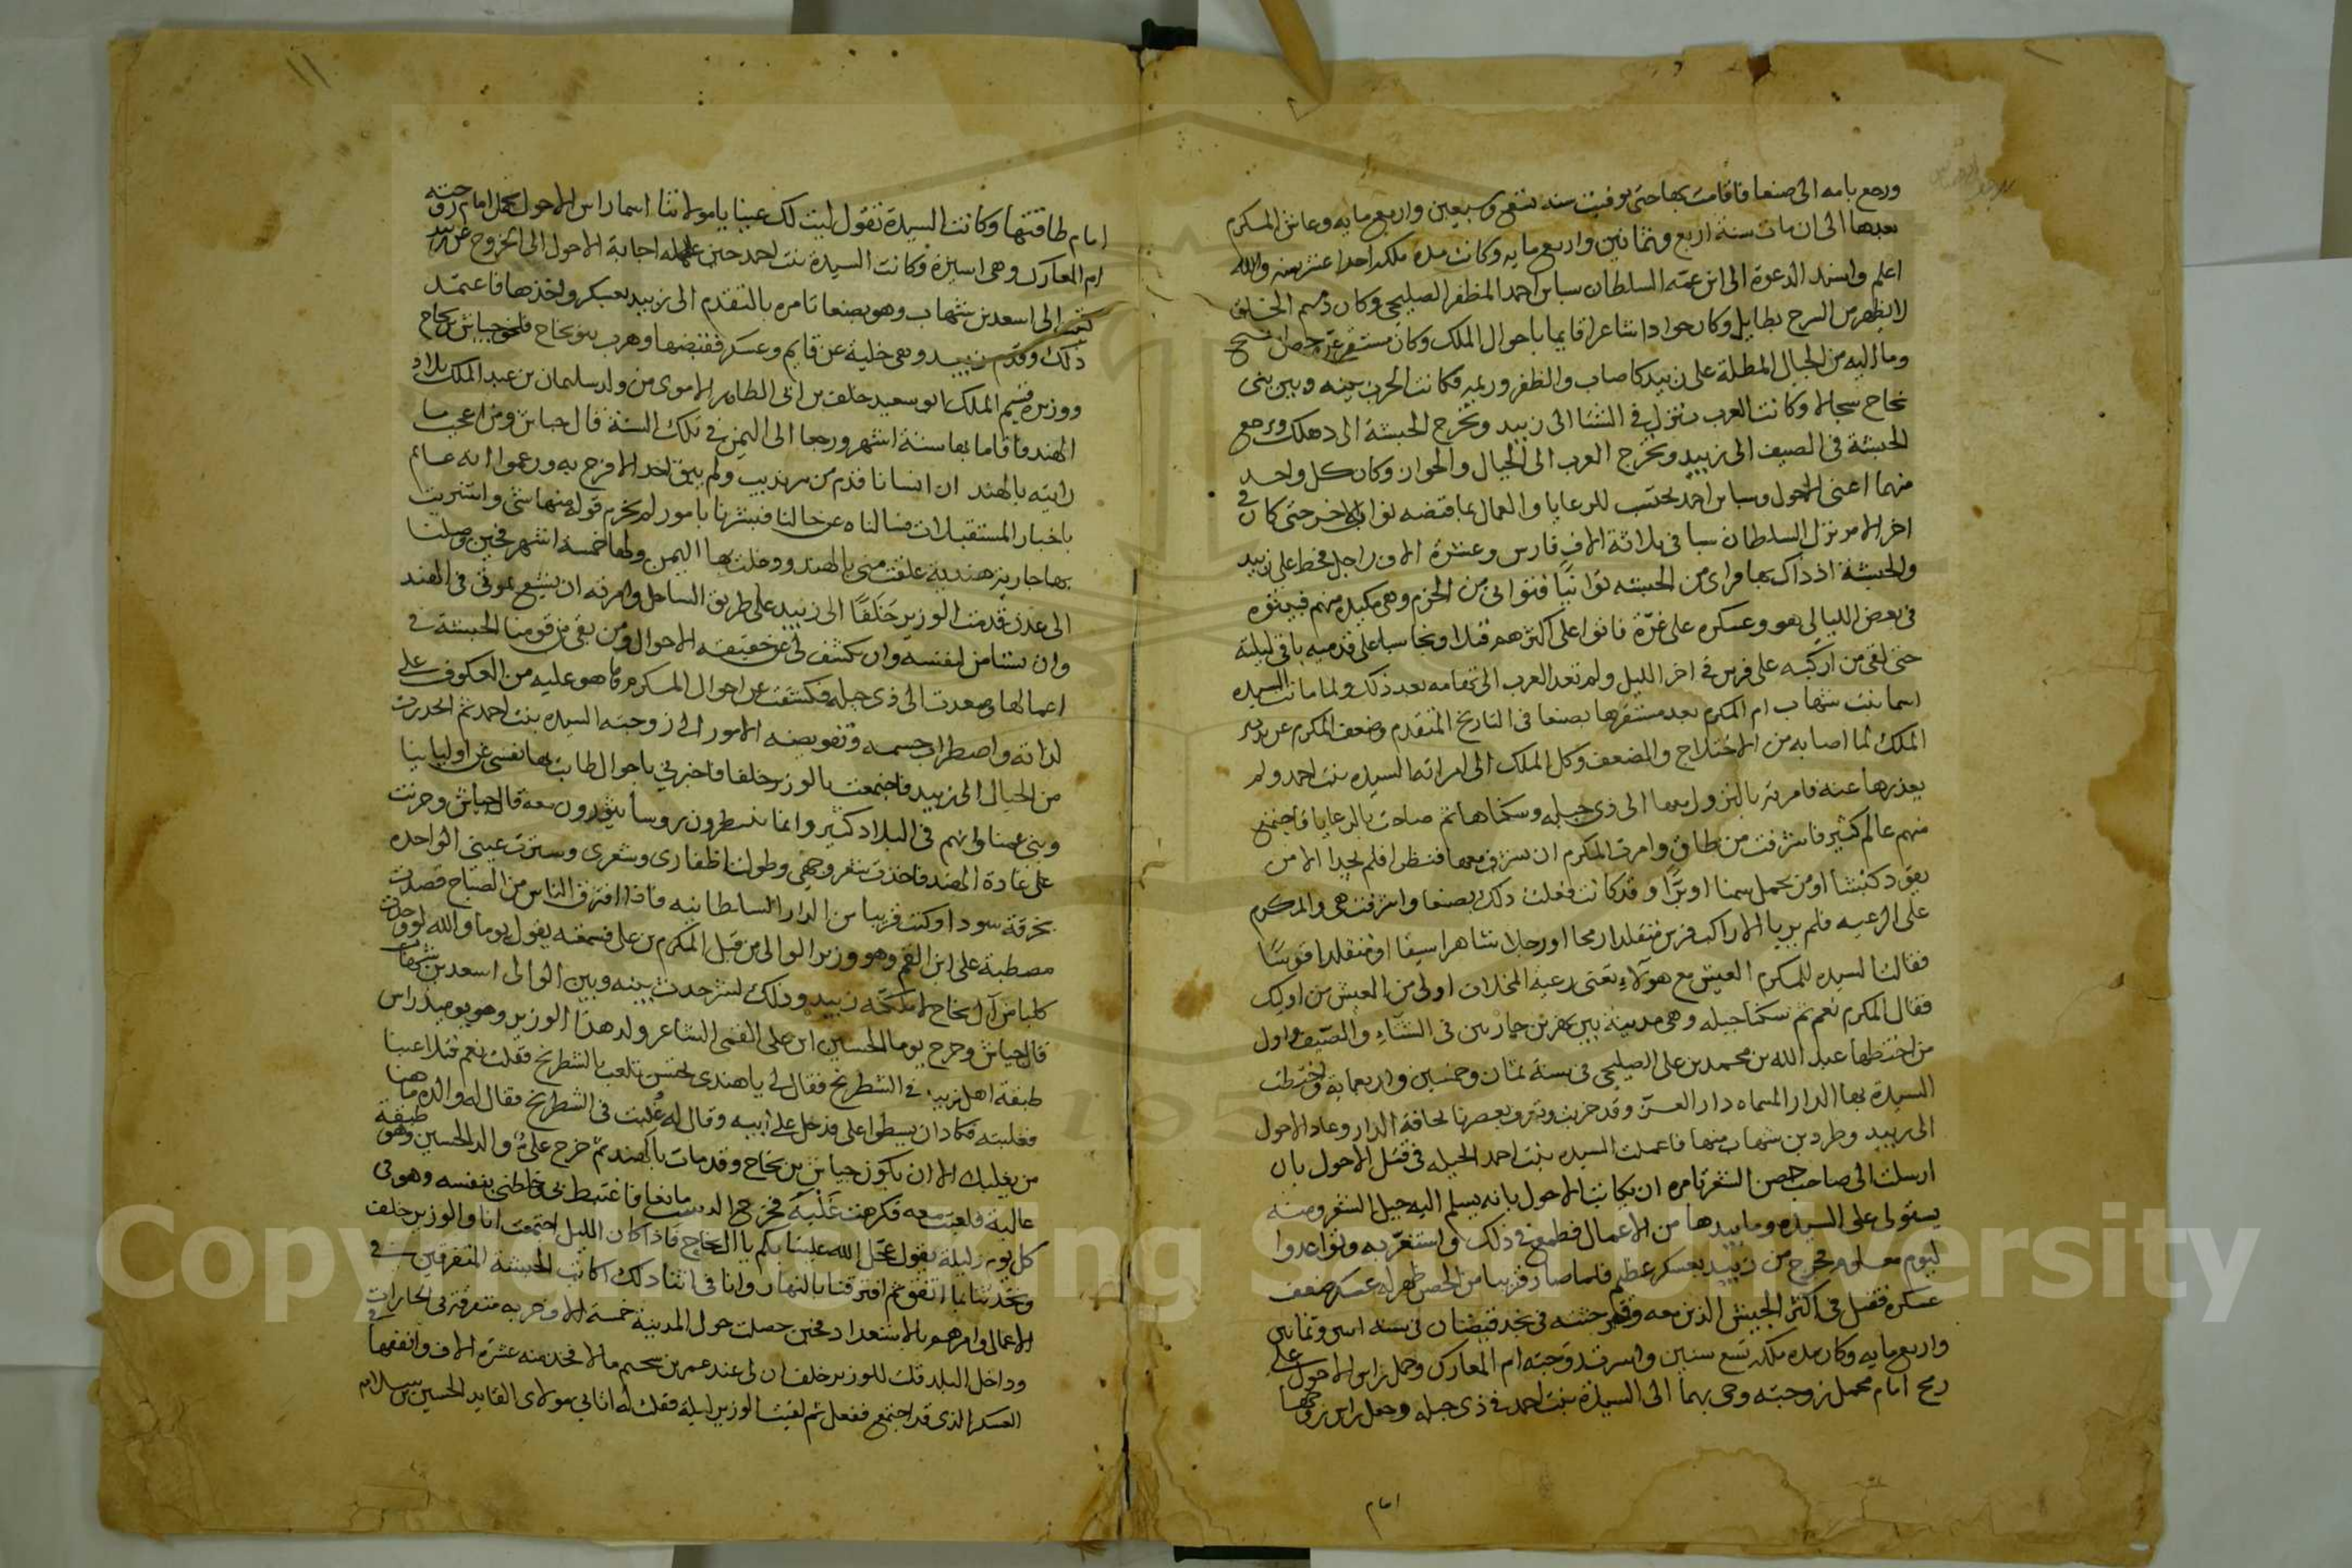 ورجع بامه الى صنعا فاقامت بها حتى توفيت سنه تسع وسبعين واربع مايه وعاش المكرم
بعدها الى ان مات سنة اربع وثمانين واربع مايه وكانت مدة ملكه احدا عشر سنه والله
اعلم واسند الدعوة الى ابن عمه السلطان سبا بن احمد المظفر الصليحي وكان دميم الخلق
لا يظهر من السرج بطايل وكان جوادا شاعرا قايما باحوال الملك وكان مستقر عزه حصن اشيح
وما اليه من الجبال المطلة على زبيد كاصاب والظفر وريمه فكانت الحرب بينه وبين بني
نجاح سجالا وكانت العرب تنزل في الشتا الى زبيد وتخرج الحبشة الى دهلك وترجع
الحبشة في الصيف الى زبيد وتخرج العرب الى الجبال والحوان وكان كل واحد
منهما اعني الاحول وسبا بن احمد يحتسب للرعايا والعمال بما قبضه نواب الاخر حتى كان في
اخر الامر نزل السلطان سبا في ثلاثة الاف فارس وعشرة الاف راجل فحط على زبيد
والحبشة اذ ذاك بها فراى من الحبشه توانيا فتوانى من الحزم وهي مكيدة منهم فبيتوه
في بعض الليالي هو وعسكره على غرة فاتوا على اكثرهم قتلا ونجا سبا على قدميه باقي ليلته
حتى لقي من اركبه على فرس في اخر الليل ولم تعد العرب الى تهامه بعد ذلك ولما ماتت السيده
اسما بنت شهاب ام المكرم بعد مستقرها بصنعا في التاريخ المتقدم وضعف المكرم عن تدبير
الملك لما اصابه من الاختلاج والضعف وكل الملك الى امراته السيده بنت احمد ولم
يعذرها عنه فامرته بالنزول معها الى ذي جبله وسكناها ثم صاحت بالرعايا فاجتمع
منهم عالم كثير فاشرفت من طاق وامرت المكرم ان يشرف معها فنظرا فلم يجدا الا من
يقود كبشا او من يحمل سمنا او برا وقد كانت فعلت ذلك بصنعا واشرفت هي والمكرم
على الرعيه فلم يريا الا راكب فرس متقلدا رمحا او رجلا شاهرا سيفا او متقلدا قوسا
فقالت السيده للمكرم العيش مع هولاء تعني رعية المخلاف اولى من العيش من اوليك
فقال المكرم نعم ثم سكنا جبله وهي مدينة بين نهرين جاريين في الشتاء والصيف واول
من اختطها عبد الله بن محمد بن علي الصليحي في سنة ثمان وخمسين واربعمايه واختطت
السيدة بها الدار المسماه دار العز وقد خربت وتعرف بعصرنا بحافة الدار وعاد الاحول
الى زبيد وطرد بن شهاب منها فاعملت السيده بنت احمد الحيله في قتل الاحول بان
ارسلت الى صاحب حصن الشعر تامره ان يكاتب الاحول بانه يسلم اليه جبل الشعر ومنه
يستولي على السيده وما بيدها من الاعمال فطمع في ذلك واستغر به وتواعدوا
ليوم معلوم فخرج من زبيد بعسكر عظيم فلما صار قريبا من الحصن ظهر له عسكر ضعف
عسكره فقتل في اكثر الجيش الذين معه وقبر جثته في نجد قيضان في سنه اثنين وثمانين
واربع مايه وكان مده ملكه تسع سنين واسرت زوجته ام المعارك وحمل راس الاحول على
رمح امام محمل زوجته وجي بهما الى السيدة بنت احمد في ذي جبله وجعل راس زوجها
امام
١١
امام طاقتها وكانت السيدة تقول ليت لك عينا يا مولاتنا اسما راس الاحول يحمل امام زوجته
ام المعارك وهي اسيرة وكانت السيدة بنت احمد حين علمه اجابة الاحول الى الخروج عن زبيد
كتبت الى اسعد بن شهاب وهو بصنعا تامره بالتقدم الى زبيد بعسكر وياخذها فاعتمد
ذلك وقدم زبيد وهي خلية عن قايم وعسكر فقبضها وهرب بنو نجاح فلحق جياش بن نجاح
ووزيره قسيم الملك ابو سعيد خلف بن ابي الطاهر الاموي من ولد سليمان بن عبد الملك ببلاد
الهند فاقاما بها ستة اشهر ورجعا الى اليمن في تلك السنة قال جياش ومن اعجب ما
رايته بالهند ان انسانا قدم من سرنديب ولم يبق احد الا فرح به وزعموا انه عالم
باخبار المستقبلات فسالناه عن حالنا فبشرنا بامور لم يخرم قوله منها شي واشتريت
بها جارية هندية علقت مني بالهند ودخلت بها اليمن ولها خمسة اشهر فحين وصلنا
الى عدن قدمت الوزير خلفا الى زبيد على طريق الساحل وامرته ان يشيع بموتي في الهند
وان يستامن لنفسه وان يكشف لي عن حقيقه الاحوال ومن بقي من قومنا الحبشة في
اعمالها وصعدت الى ذي جبله فكشفت عن احوال المكرم وما هو عليه من العكوف على
لذاته واضطراب جسمه وتفويضه الامور الى زوجته السيده بنت احمد ثم انحدرت
من الجبال الى زبيد فاجتمعت بالوزير خلفا فاخبرني باحوال طابت بها نفسي عن اوليائنا
وبني عمنا وانهم في البلاد كثير وانما ينتظرون روسا يثورون معه قال جياش وجريت
على عادة الهند فاخذت شعر وجهي وطولت اظفاري وشعري وسترت عيني الواحده
بخرقة سودا وكنت قريبا من الدار السلطانيه فاذا افترق الناس من الصباح قصدت
مصطبة علي ابن القم وهو وزير الوالي من قبل المكرم بن علي فسمعته يقول يوما والله لو وجدت
كلبا من آل نجاح لاملكته زبيد وذلك لشر حدث بينه وبين الوالي اسعد بن شهاب
قال جياش وخرج يوما الحسين ابن علي القمي الشاعر ولد هذا الوزير وهو يوميذ راس
طبقة اهل زبيد في الشطرنج فقال لي يا هندي تحسن تلعب بالشطرنج فقلت نعم فتلاعبنا
فغلبته فكاد ان يسطوا علي فدخل على ابيه وقال له غلبت في الشطرنج فقال له والده ما هنا
من يغلبك الا ان يكون جياش بن نجاح وقد مات بالهند ثم خرج علي والد الحسين وهو طبقة
عالية فلعبت معه فكرهت غلبه فخرج الدست مانعا فاغتبط بي وخلطني بنفسه وهو في
كل يوم وليلة يقول عجل الله علينا بكم يا ال نجاح فاذا كان الليل اجتمعت انا والوزير خلف
وتحدثنا بما اتفق ثم افترقنا بالنهار وانا في اثنا ذلك اكاتب الحبشة المتفرقين في
الاعمال وامرهم بالاستعداد فحين حصلت حول المدينة خمسة الاف حربه متفرقة في الحارات
وداخل البلد قلت للوزير خلف ان لي عند عمر بن سحيم مالا فخذ منه عشرة الاف وانفقها في
العسكر الذي قد اجتمع ففعل ثم لقيت الوزير ليلة فقلت له اتاني مولاي القايد الحسين بن سلامه
Copyright © King Saud University